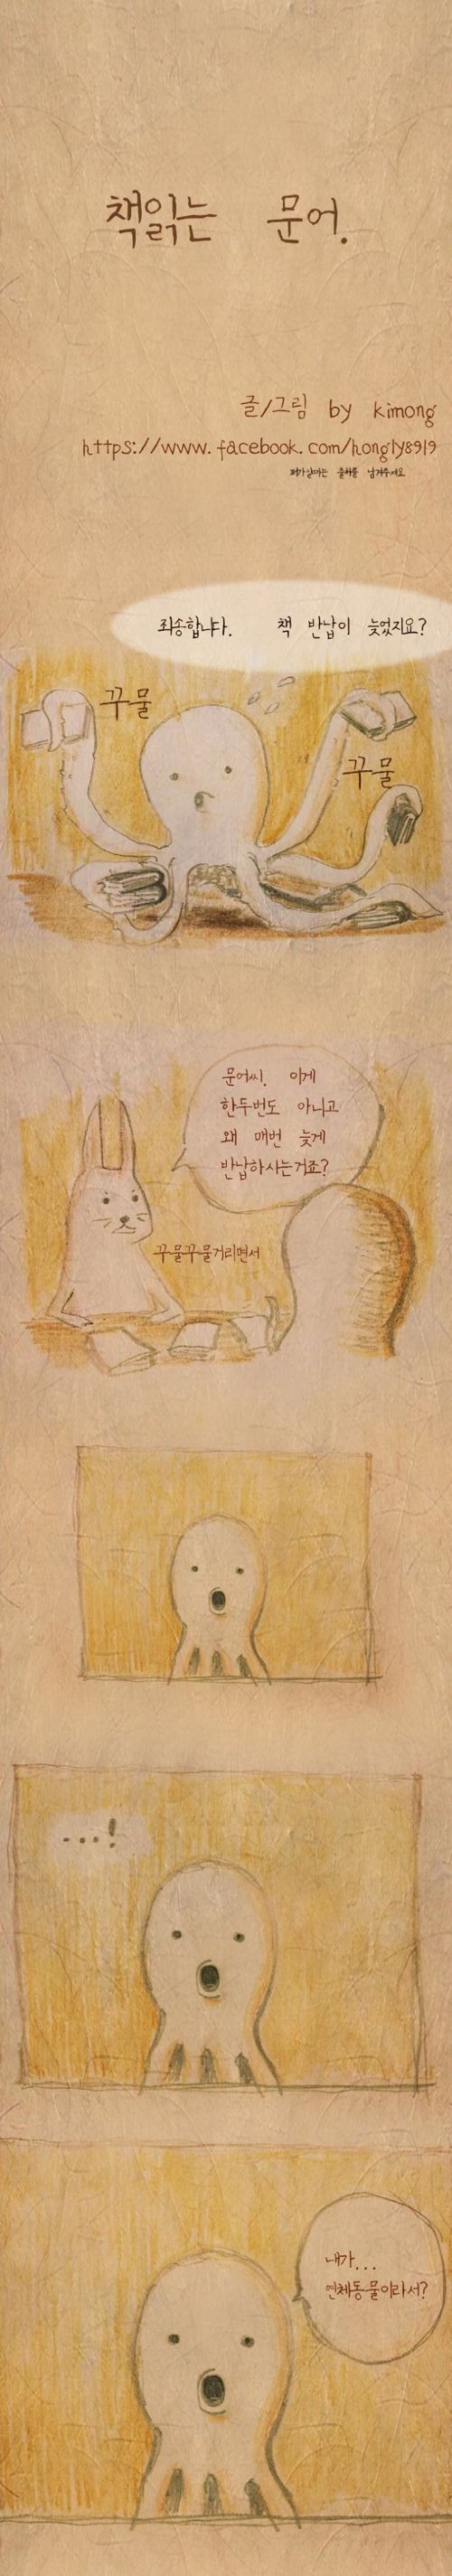 책읽는 문어.
글/그림 by kimong
https://www.facebook.com/hongly8919
퍼가실때는 출처를 남겨주세요
죄송합니다. 책 반납이 늦었지요?
꾸물
꾸물
문어씨. 이게
한두번도 아니고
왜 매번 늦게
반납하시는거죠?
꾸물꾸물거리면서
...!
내가...
연체동물이라서?